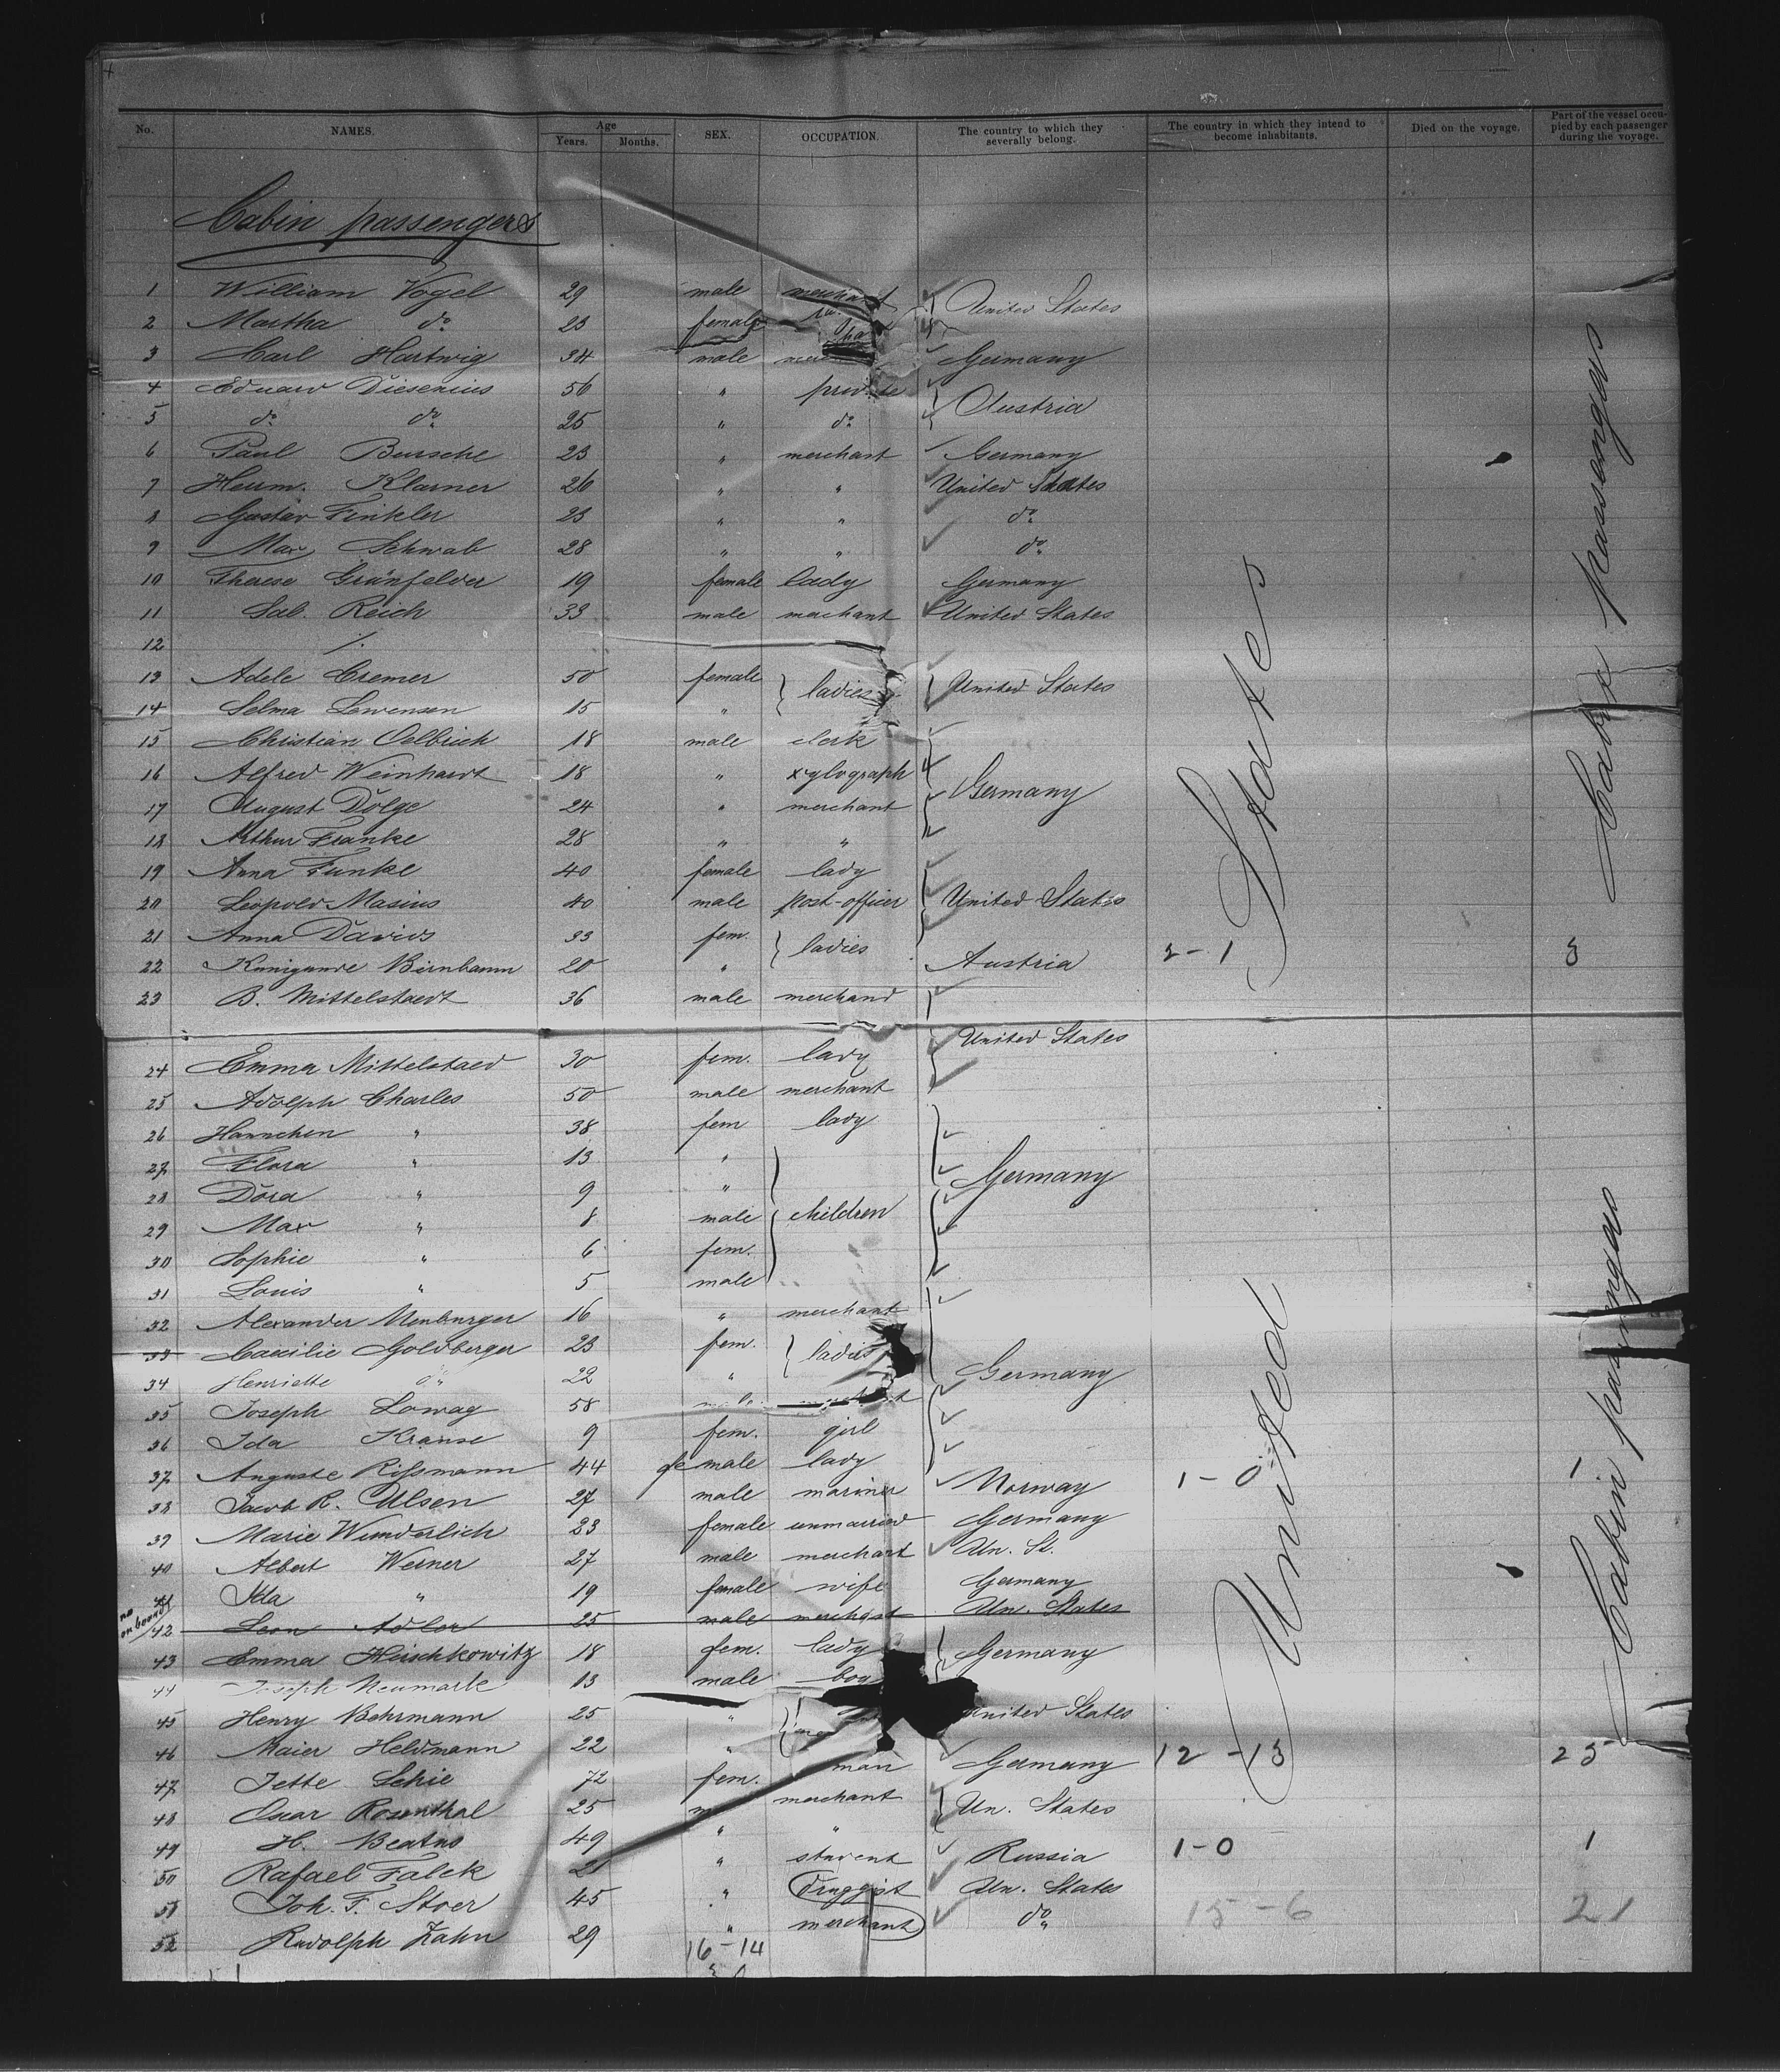 No. NAMES. Age Years. Months. SEX. OCCUPATION. The country to which they severally belong. The country in which they intend to become inhabitants. Died on the voyage. Part of the vessel occupied by each passenger during the voyage.
Cabin passengers
1 William Vogel 29 male merchant United States
2 Martha do 23 female
3 Carl Hartwig 34 male Germany
4 Eduard Diesenius 56 " private Austria
5 do do 25 " do
6 Paul Bursche 23 " merchant Germany
7 Herrm. Klarner 26 " " United States
8 Gustav Finkler 23 " " do
9 Max Schwab 28 " " do
10 Therese Grünfelder 19 female lady Germany
11 Sal. Reich 33 male merchant United States
12 /.
13 Adele Cremer 50 female ladies United States
14 Selma Lewensen 15 "
15 Christian Oelbrich 18 male clerk
16 Alfred Weinhardt 18 " xylograph Germany
17 August Dolge 24 " merchant
18 Arthur Franke 28 " "
19 Anna Funke 40 female lady
20 Leopold Masius 40 male post-officer United States
21 Anna Davids 33 fem. ladies
22 Kunigunde Birnbaum 20 " Austria 2-1 3
23 B. Mittelstaedt 36 male merchand
United States
24 Emma Mittelstaed 30 fem. lady
25 Adolph Charles 50 male merchant
26 Hannchen " 38 fem lady
27 Flora " 13 " Germany
28 Dora " 9 "
29 Max " 8 male children
30 Sophie " 6 fem.
31 Louis " 5 male
32 Alexander Neuburger 16 " merchant
33 Caecilie Goldberger 23 fem. ladies
34 Henriette do 22 " Germany
35 Joseph Lowag 58
36 Ida Krause 9 fem. girl
37 Auguste Rissmann 44 female lady
38 Jacob R. Ulsen 27 male mariner Norway 1-0 1
39 Marie Wunderlich 23 female unmarried Germany
40 Albert Werner 27 male merchant Un. St.
41 Ida " 19 female wife Germany
no on board 42 Leon Adler 25 male merchant Un. States
43 Emma Hirschkowitz 18 fem. lady Germany
44 Joseph Neumark 13 male boy
45 Henry Behrmann 25 " United States
46 Maier Heldmann 22 " Germany 12-13 25
47 Jette Schie 72 fem.
48 Oscar Rosenthal 25 merchant Un. States
49 H. Beatus 49 " "
50 Rafael Falck 21 " student Russia 1-0 1
51 Joh. F. Stoer 45 " Druggist Un. States
52 Rudolph Zahn 29 " merchant do 15-6 21
16-14
United States
Cabin passengers
Cabin passengers